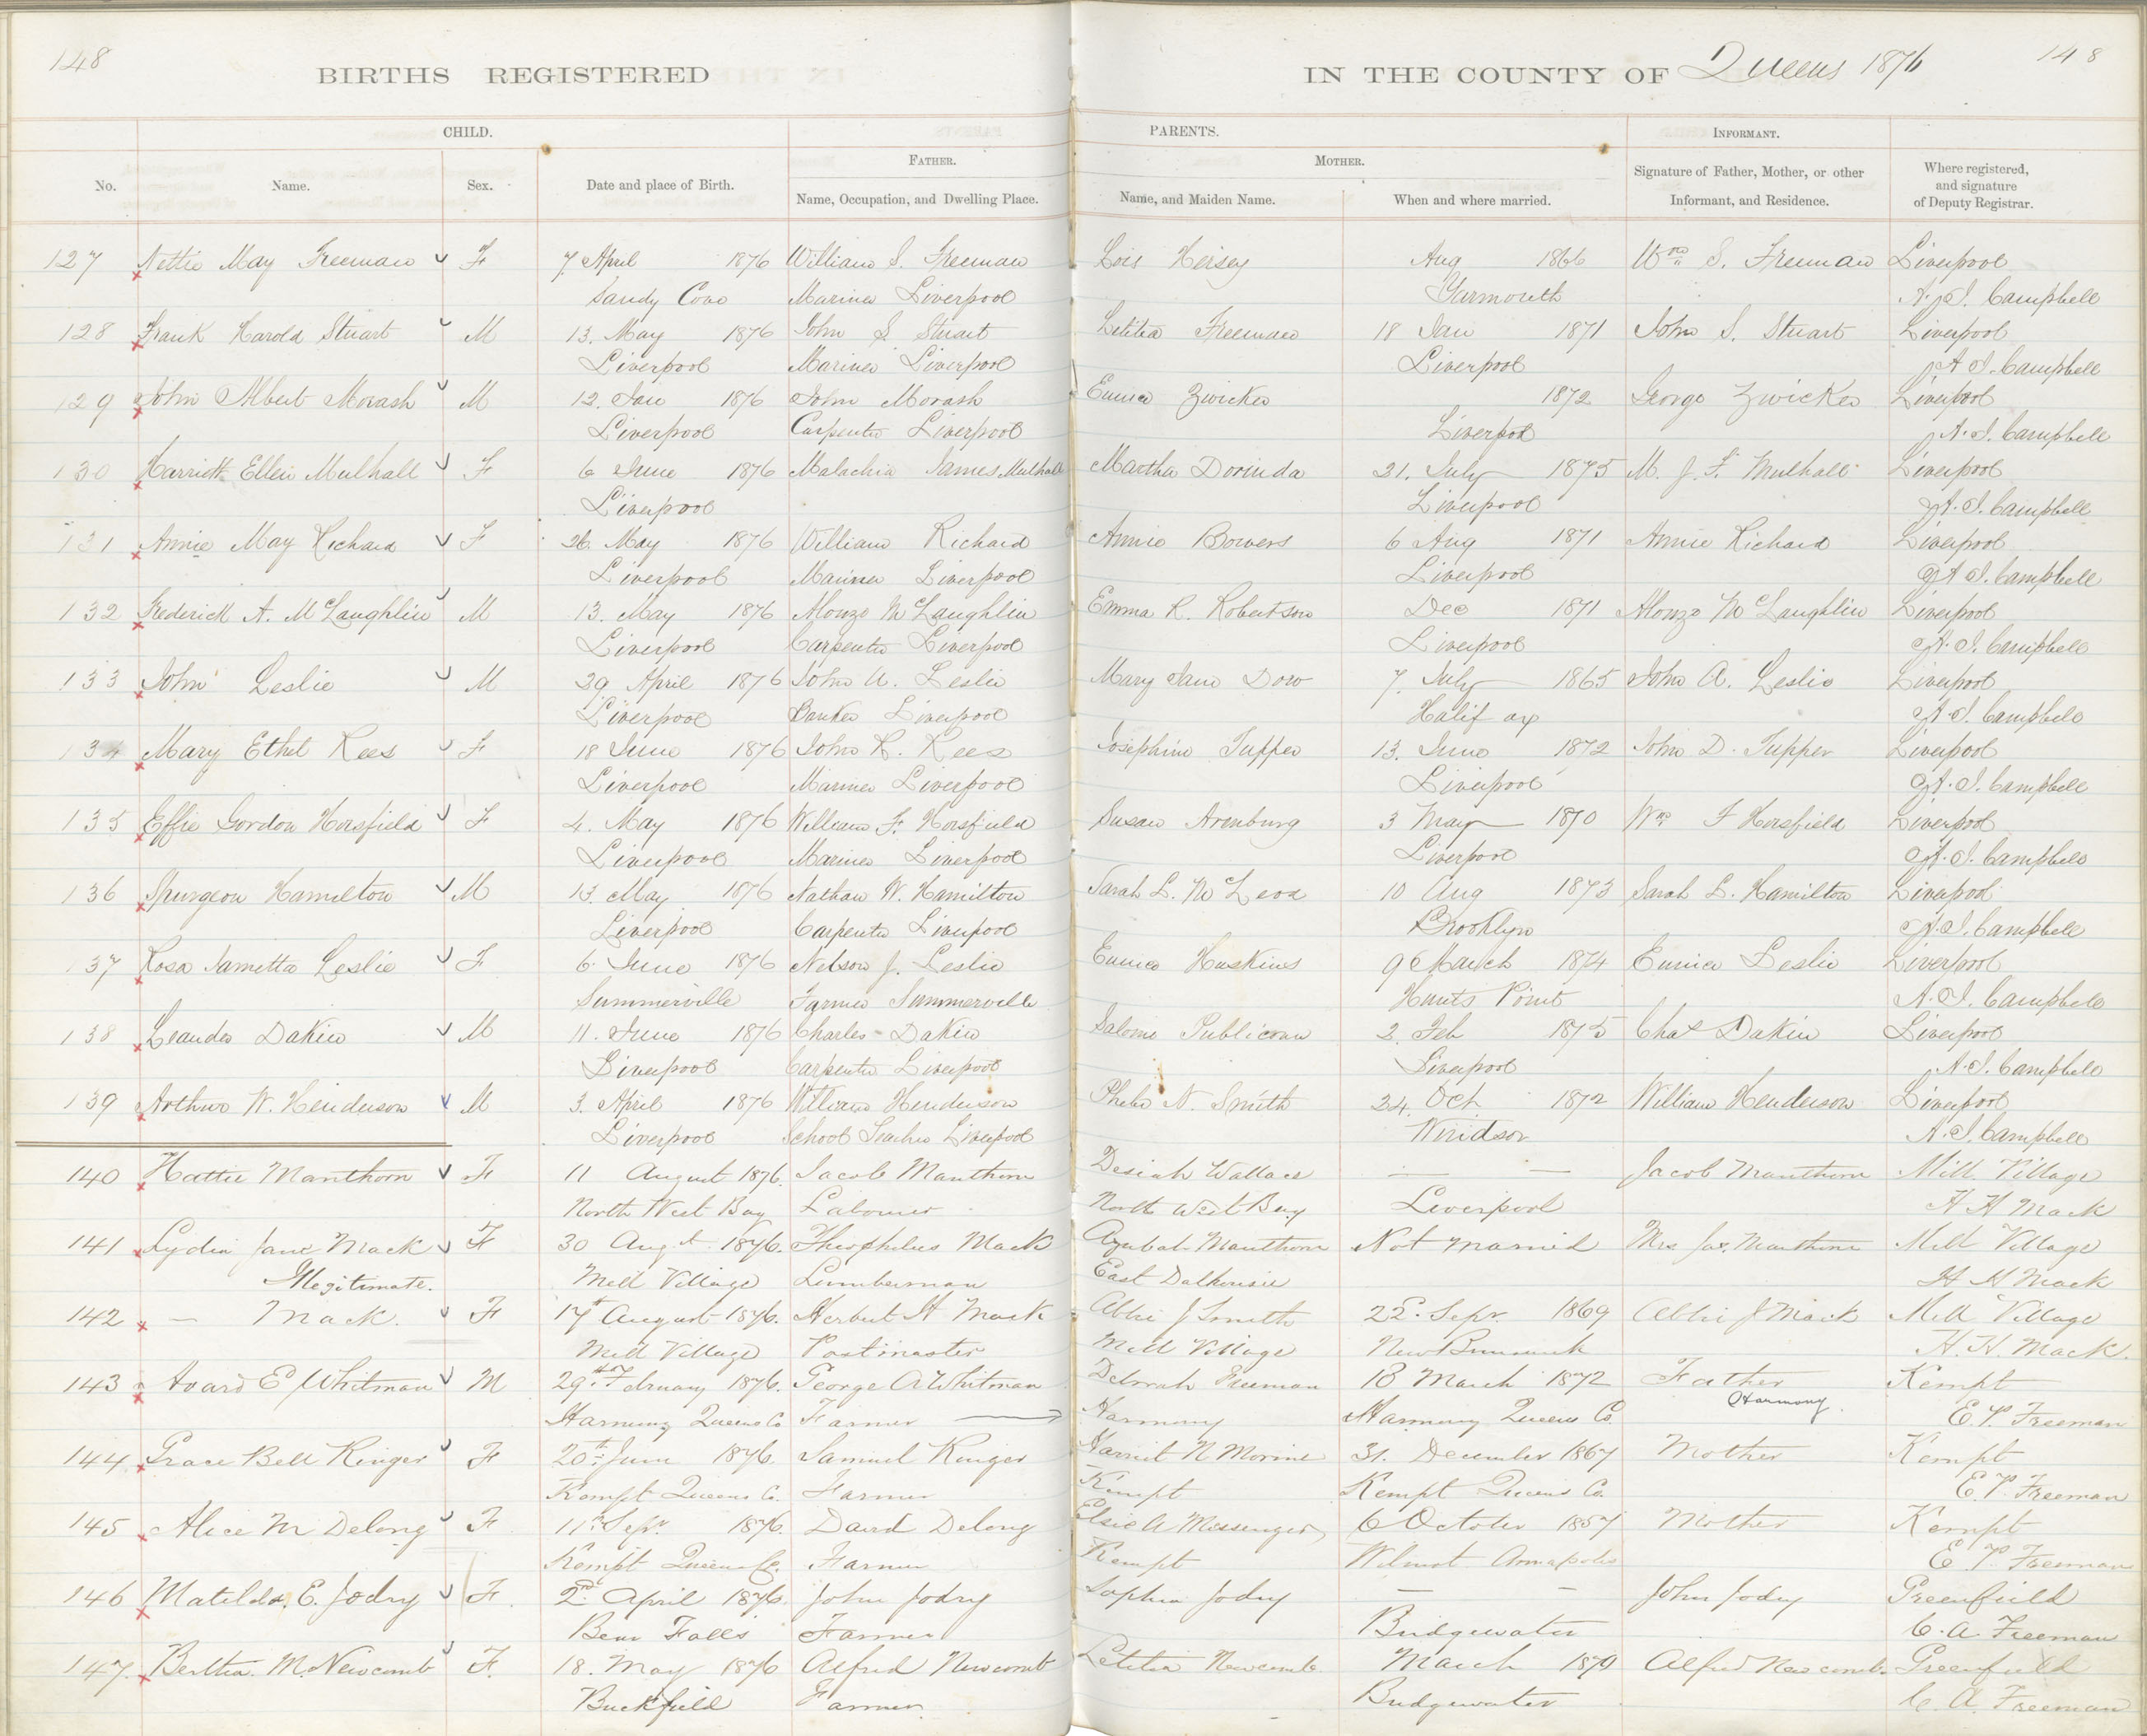 148
BIRTHS REGISTERED
IN THE COUNTY OF Queens 1876
148
CHILD.
PARENTS.
INFORMANT.
FATHER.
MOTHER.
No.
Name.
Sex.
Date and place of Birth.
Name, Occupation, and Dwelling Place.
Name, and Maiden Name.
When and where married.
Signature of Father, Mother, or other
Informant, and Residence.
Where registered,
and signature
of Deputy Registrar.
127 Nettie May Freeman F 7 April 1876 William S. Freeman Lois Hersey Aug 1866 Wm S. Freeman Liverpool
Sandy Cove Mariner Liverpool Yarmouth A. J. Campbell
128 Frank Harold Stuart M 13. May 1876 John S. Stuart Letitia Freeman 18 Jan 1871 John S. Stuart Liverpool
Liverpool Mariner Liverpool Liverpool A. J. Campbell
129 John Albert Morash M 12. Jan 1876 John Morash Eunice Zwicker 1872 George Zwicker Liverpool
Liverpool Carpenter Liverpool Liverpool A. J. Campbell
130 Harriett Ellen Mulhall F 6 June 1876 Malachia James Mulhall Martha Dorinda 21. July 1875 M. J. F. Mulhall Liverpool
Liverpool Liverpool A. J. Campbell
131 Annie May Richard F 26. May 1876 William Richard Annie Bowers 6 Aug 1871 Annie Richard Liverpool
Liverpool Mariner Liverpool Liverpool A. J. Campbell
132 Frederick A. McLaughlin M 13. May 1876 Alonzo McLaughlin Emma R. Robertson Dec 1871 Alonzo McLaughlin Liverpool
Liverpool Carpenter Liverpool Liverpool A. J. Campbell
133 John Leslie M 29 April 1876 John A. Leslie Mary Jane Dow 7. July 1865 John A. Leslie Liverpool
Liverpool Banker Liverpool Halifax A. J. Campbell
134 Mary Ethel Rees F 18 June 1876 John R. Rees Josephine Tupper 13. June 1872 John D. Tupper Liverpool
Liverpool Mariner Liverpool Liverpool A. J. Campbell
135 Effie Gordon Horsfield F 4. May 1876 William F. Horsfield Susan Arenburg 3 May 1870 Wm F Horsfield Liverpool
Liverpool Mariner Liverpool Liverpool A. J. Campbell
136 Spurgeon Hamilton M 13. May 1876 Nathan W. Hamilton Sarah L. McLeod 10 Aug 1873 Sarah L. Hamilton Liverpool
Liverpool Carpenter Liverpool Brooklyn A. J. Campbell
137 Rosa Jametta Leslie F 6. June 1876 Nelson J. Leslie Eunice Huskins 9 March 1874 Eunice Leslie Liverpool
Summerville Farmer Summerville Hunts Point A. J. Campbell
138 Leander Dakin M 11. June 1876 Charles Dakin Salome Publicover 2. Feb 1875 Chas Dakin Liverpool
Liverpool Carpenter Liverpool Liverpool A. J. Campbell
139 Arthur W. Henderson M 3. April 1876 William Henderson Phebe N. Smith 24. Oct 1872 William Henderson Liverpool
Liverpool School Teacher Liverpool Windsor A. J. Campbell
140 Hattie Manthorn F 11 August 1876. Jacob Manthorn Desiah Wallace — — Jacob Manthorn Mill Village
North West Bay Labourer North West Bay Liverpool H H Mack
141 Lydia Jane Mack F 30 Augt. 1876. Theophilus Mack Azubah Manthorn Not Married Mrs Jas. Manthorn Mill Village
Illegitimate. Mill Village Lumberman East Dalhousie H H Mack
142 — Mack. F 17th August 1876. Herbert H Mack Abbie J Smith 22d. Sepr. 1869 Abbie J Mack Mill Village
Mill Village Postmaster Mill Village New Brunswick H. H. Mack.
143 Avard E Whitman M 29th February 1876. George A Whitman Deborah Freeman 18 March 1872 Father Kempt
Harmony Queens Co Farmer Harmony Harmony Queens Co. Harmony. E. P. Freeman
144. Grace Bell Ringer F 20th June 1876. Samuel Ringer Harriet N Morine 31. December 1867 Mother Kempt
Kempt Queens Co. Farmer Kempt Kempt Queens Co. E. P. Freeman
145 Alice M Delong F 11th Sepr. 1876. David Delong Elsie A Messenger 6 October 1857 Mother Kempt
Kempt Queens Co. Farmer Kempt Wilmot Annapolis E. P. Freeman
146 Matilda. E. Jodry F. 2nd. April 1876. John Jodry Sophia Jodry — — John Jodry Greenfield
Bear Falls Farmer Bridgewater C. A. Freeman
147. Bertha. M. Newcomb F. 18. May 1876 Alfred Newcomb Letitia Newcomb. March 1870 Alfred Newcomb. Greenfield
Buckfield Farmer. Bridgewater C. A. Freeman